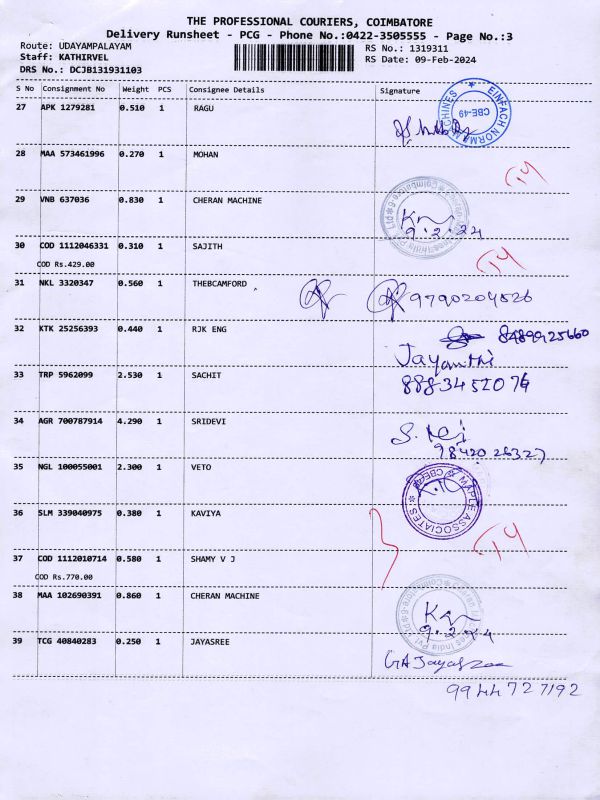 THE PROFESSIONAL COURIERS, COIMBATORE
Delivery Runsheet - PCG - Phone No.:0422-3505555 - Page No.:3
Route: UDAYAMPALAYAM
RS No.: 1319311
Staff: KATHIRVEL
RS Date: 09-Feb-2024
DRS No.: DCJB131931103
S No Consignment No Weight PCS Consignee Details Signature
27 APK 1279281 0.510 1 RAGU
EINFACH NORMA MACHINES CBE-49
28 MAA 573461996 0.270 1 MOHAN
29 VNB 637036 0.830 1 CHERAN MACHINE
9.2.24
30 COD 1112046331 0.310 1 SAJITH
COD Rs.429.00
31 NKL 3320347 0.560 1 THEBCAMFORD
9790204526
32 KTK 25256393 0.440 1 RJK ENG
8489925660
Jayanthi
33 TRP 5962099 2.530 1 SACHIT
8883451074
34 AGR 700787914 4.290 1 SRIDEVI
9842026327
35 NGL 100055001 2.300 1 VETO
MAPLE ASSOCIATES CBE-49
36 SLM 339040975 0.380 1 KAVIYA
37 COD 1112010714 0.580 1 SHAMY V J
COD Rs.770.00
38 MAA 102690391 0.860 1 CHERAN MACHINE
9.2.24
39 TCG 40840283 0.250 1 JAYASREE
9944727192